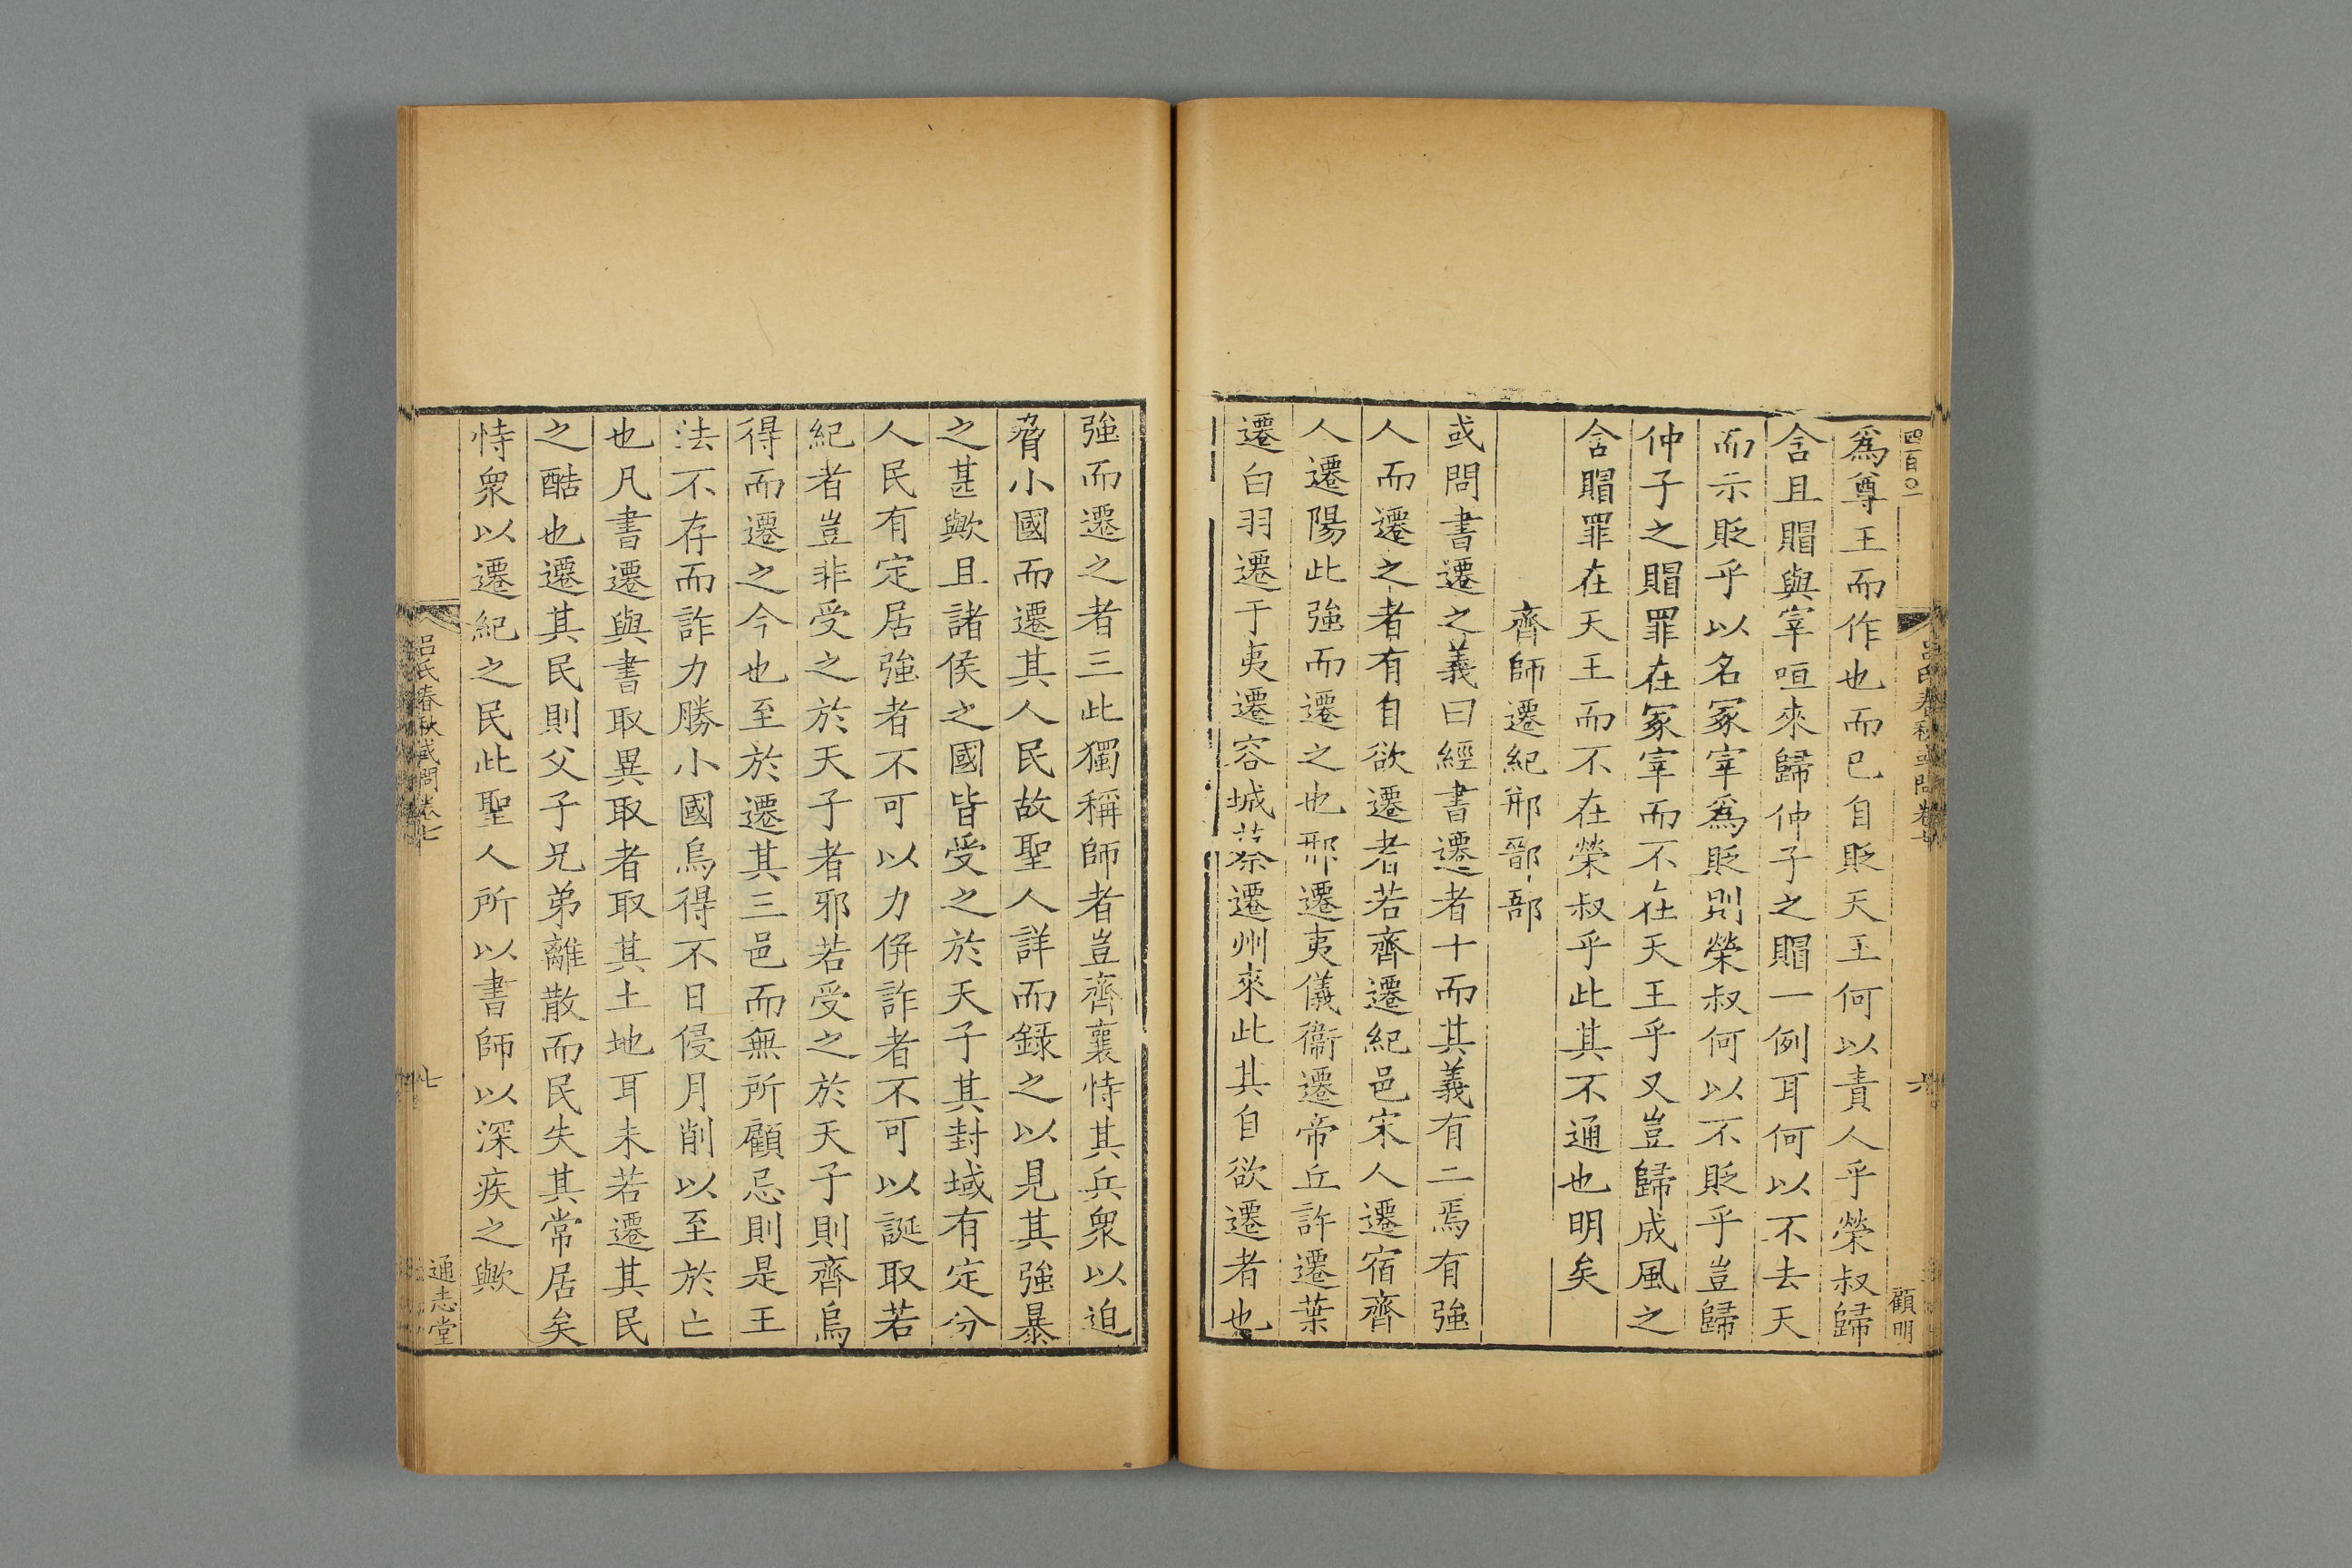 四百〇一
呂氏春秋或問卷七
六
顧明
爲尊王而作也而已自貶天王何以責人乎榮叔歸
含且賵與宰咺來歸仲子之賵一例耳何以不去天
而示貶乎以名冢宰爲貶則榮叔何以不貶乎豈歸
仲子之賵罪在冢宰而不在天王乎又豈歸成風之
含賵罪在天王而不在榮叔乎此其不通也明矣
齊師遷紀郱鄑郚
或問書遷之義曰經書遷者十而其義有二焉有強
人而遷之者有自欲遷者若齊遷紀邑宋人遷宿齊
人遷陽此強而遷之也邢遷夷儀衞遷帝丘許遷葉
遷白羽遷于夷遷容城蔡遷州來此其自欲遷者也
強而遷之者三此獨稱師者豈齊襄恃其兵衆以迫
脅小國而遷其人民故聖人詳而録之以見其強暴
之甚歟且諸侯之國皆受之於天子其封域有定分
人民有定居強者不可以力併詐者不可以誕取若
紀者豈非受之於天子者邪若受之於天子則齊烏
得而遷之今也至於遷其三邑而無所顧忌則是王
法不存而詐力勝小國烏得不日侵月削以至於亡
也凡書遷與書取異取者取其土地耳未若遷其民
之酷也遷其民則父子兄弟離散而民失其常居矣
恃衆以遷紀之民此聖人所以書師以深疾之歟
呂氏春秋或問卷七
七
通志堂